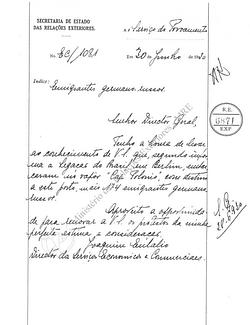 SECRETARIA DE ESTADO
DAS RELAÇÕES EXTERIORES.
Serviço de Povoamento
No
Em 30 de Junho de
Indice:
Emigrantes germano-russos.
Senhor Director Geral,
Tenho a honra de levar
ao conhecimento de V. S. que, segundo informa
a Legação do Brasil em Berlim, embar-
caram no vapor "Cap Polonio", com destino
a este porto, mais 174 emigrantes germano-
russos.
Aproveito a opportunida-
de para renovar a V. S. os protestos da minha
perfeita estima e consideração.
Joaquim Eulalio
Director dos Serviços Economicos e Commerciaes.
R. E.
6871
EXP